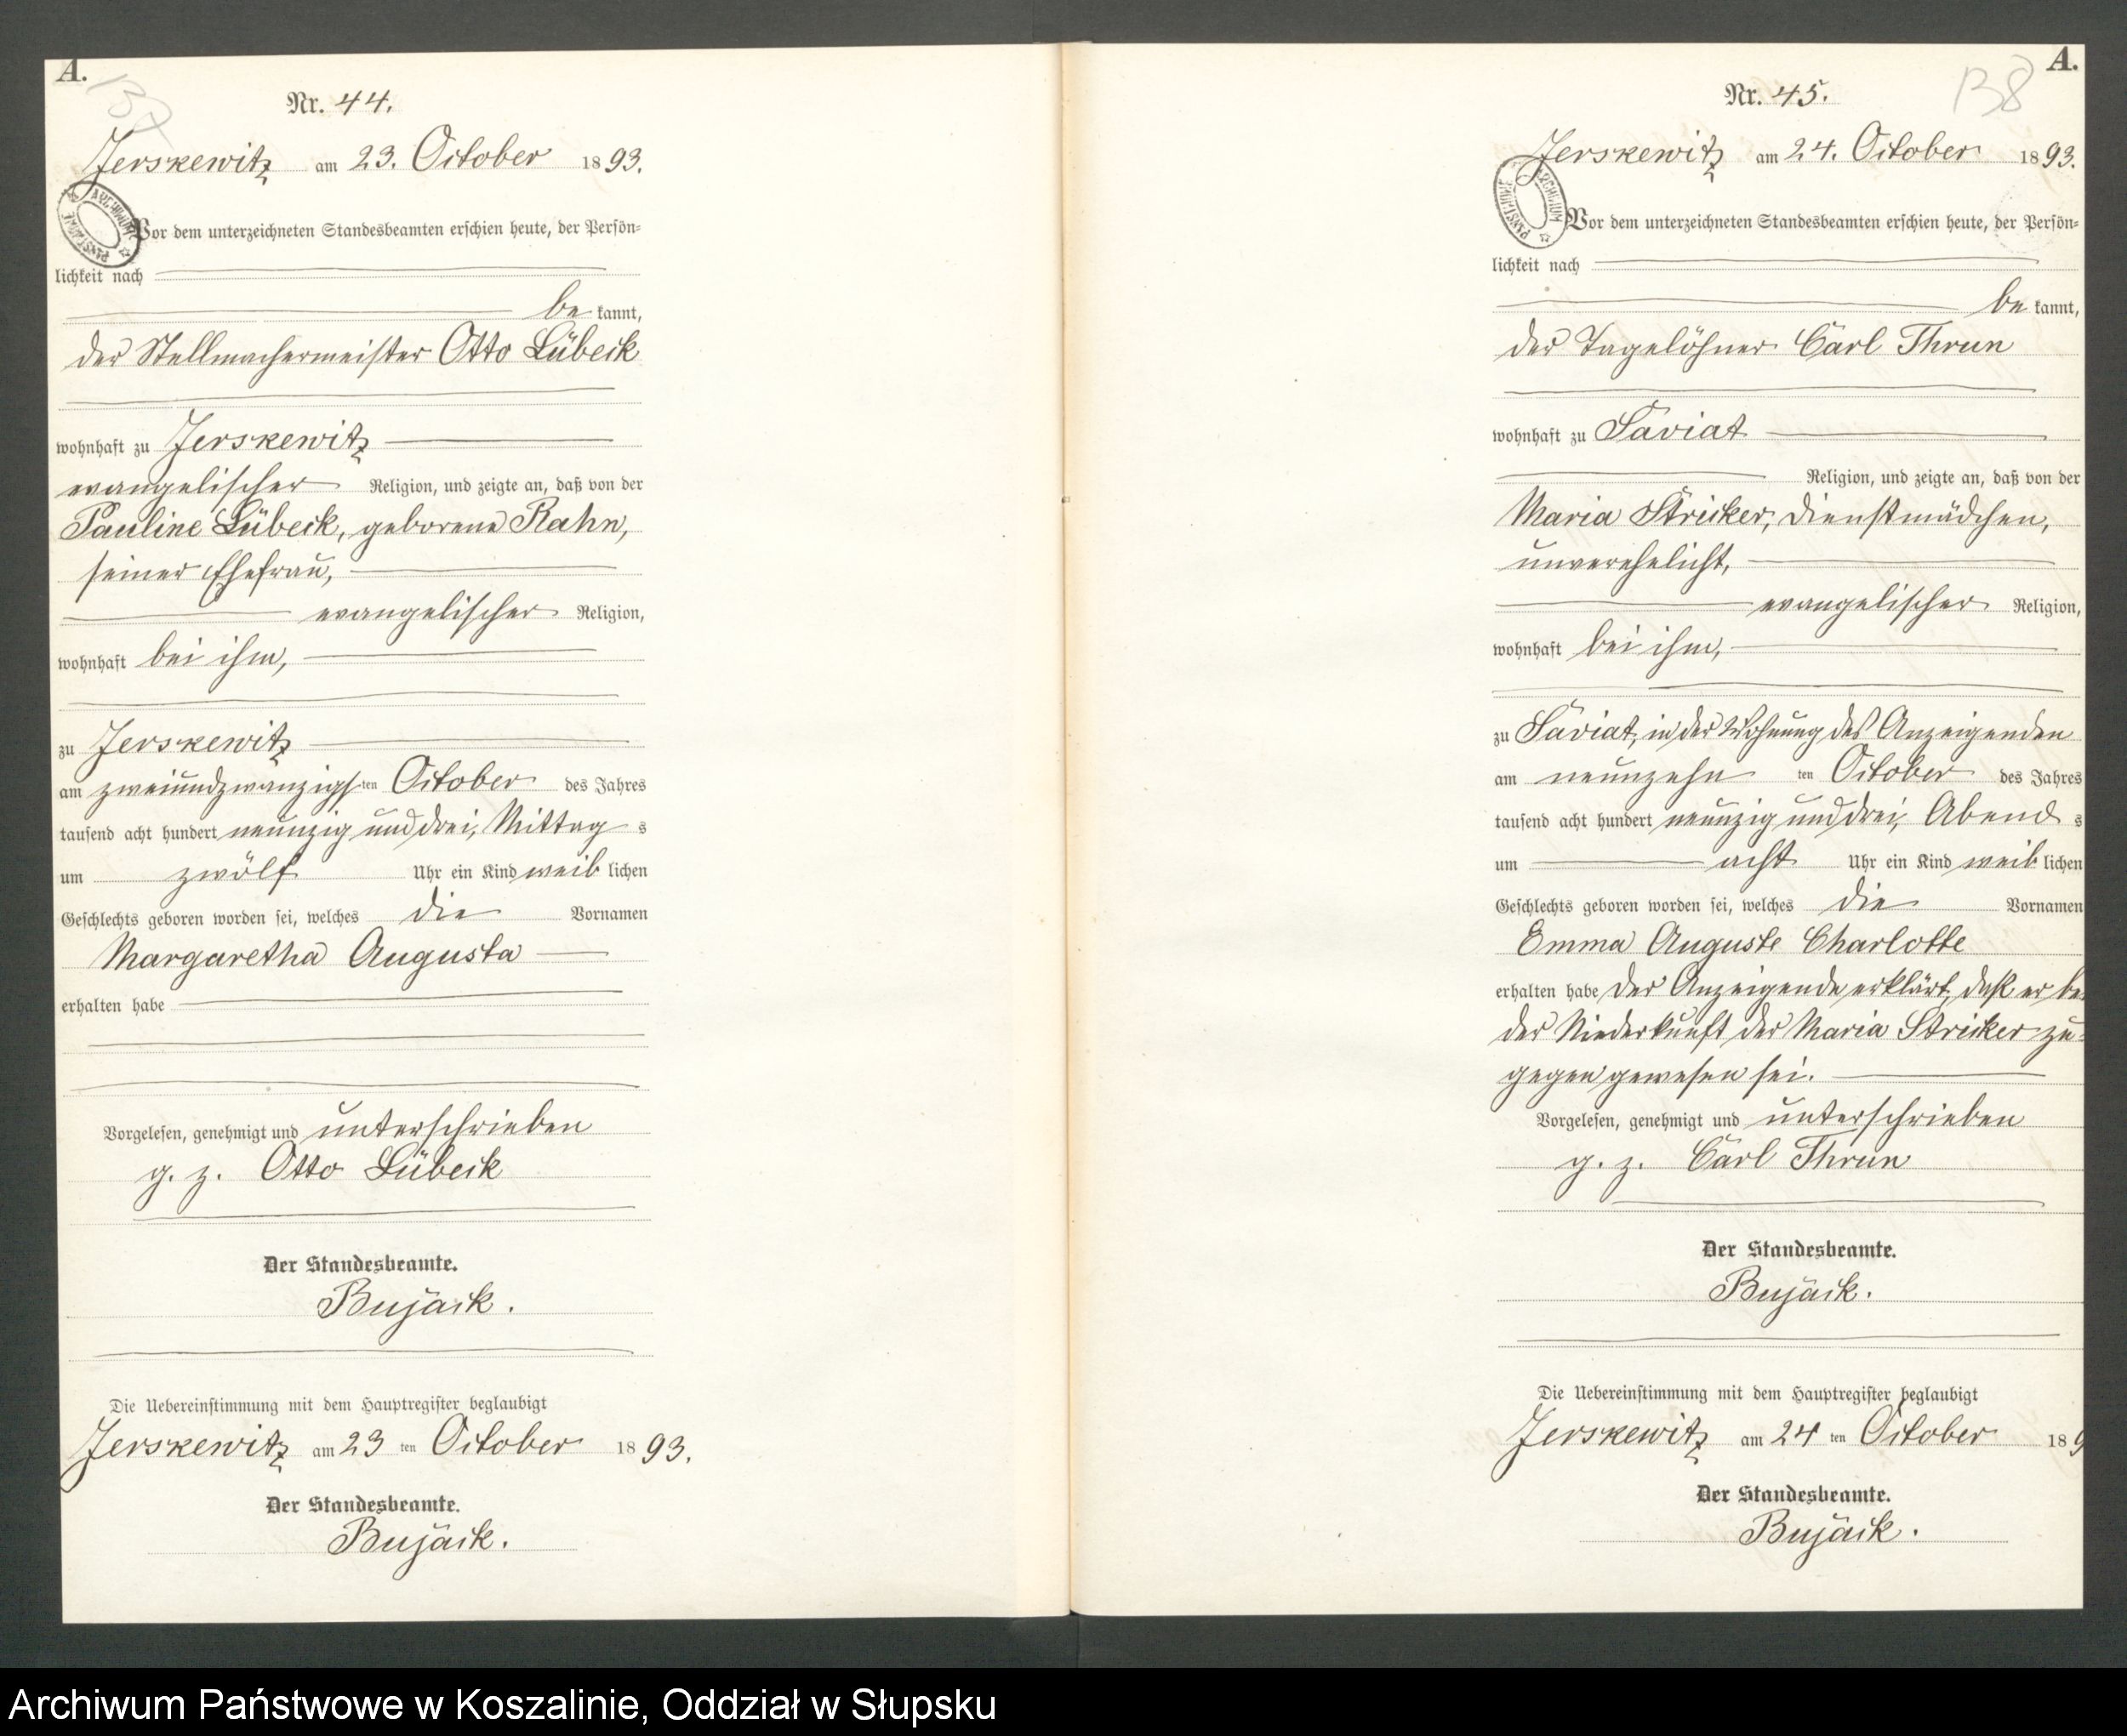 A.
Nr. 44.
Jerskewitz am 23. October 1893.
Vor dem unterzeichneten Standesbeamten erschien heute, der Persön=
lichkeit nach
be kannt,
der Stellmachermeister Otto Lübeck
wohnhaft zu Jerskewitz
evangelischer Religion, und zeigte an, daß von der
Pauline Lübeck, geborene Rahn,
seiner Ehefrau,
evangelischer Religion,
wohnhaft bei ihm,
zu Jerskewitz
am zweiundzwanzigsten October des Jahres
tausend acht hundert neunzig und drei, Mittag s
um zwölf Uhr ein Kind weib lichen
Geschlechts geboren worden sei, welches die Vornamen
Margaretha Augusta
erhalten habe
Vorgelesen, genehmigt und unterschrieben
g. z. Otto Lübeck
Der Standesbeamte.
Bujack.
Die Uebereinstimmung mit dem Hauptregister beglaubigt
Jerskewitz am 23 ten October 1893.
Der Standesbeamte.
Bujack.
A.
138
Nr. 45.
Jerskewitz am 24. October 1893.
ARCHIWUM PAŃSTWOWE
Vor dem unterzeichneten Standesbeamten erschien heute, der Persön=
lichkeit nach
be kannt,
der Tagelöhner Carl Thrun
wohnhaft zu Saviat
Religion, und zeigte an, daß von der
Maria Stricker, Dienstmädchen,
unverehelicht,
evangelischer Religion,
wohnhaft bei ihm,
zu Saviat, in der Wohnung des Anzeigenden
am neunzehn ten October des Jahres
tausend acht hundert neunzig und drei, Abend s
um acht Uhr ein Kind weib lichen
Geschlechts geboren worden sei, welches die Vornamen
Emma Auguste Charlotte
erhalten habe der Anzeigende erklärt, daß er bei
der Niederkunft der Maria Stricker zu=
gegen gewesen sei.
Vorgelesen, genehmigt und unterschrieben
g. z. Carl Thrun
Der Standesbeamte.
Bujack.
Die Uebereinstimmung mit dem Hauptregister beglaubigt
Jerskewitz am 24 ten October 189
Der Standesbeamte.
Bujack.
Archiwum Państwowe w Koszalinie, Oddział w Słupsku